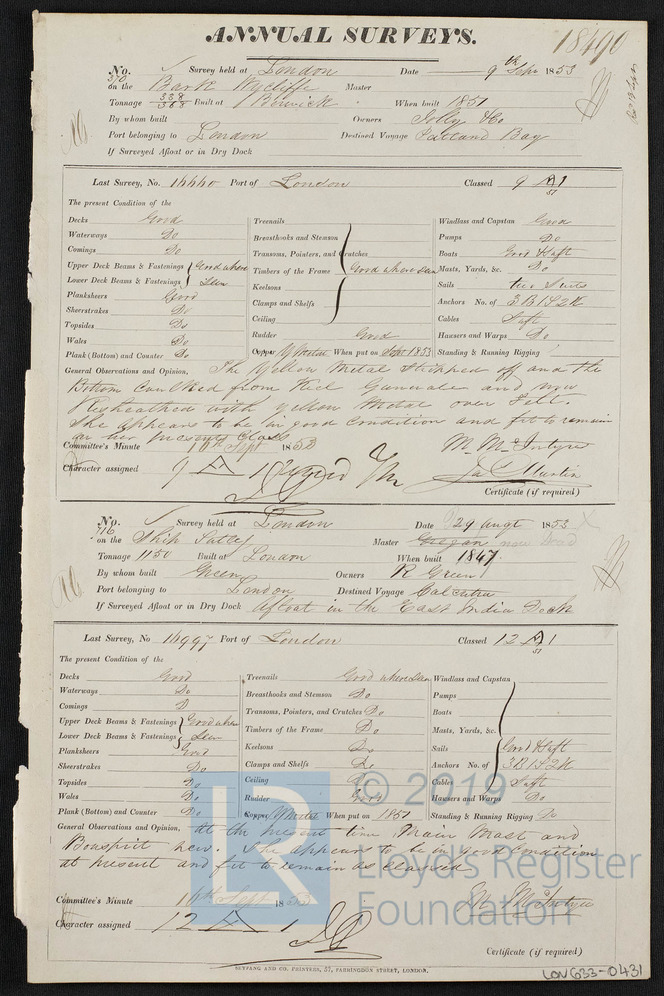 18490
ANNUAL SURVEYS.
No. 370 Survey held at London Date 9th Sepr 1853
on the Bark Wycliffe Master
Tonnage 338 368 Built at Berwick When built 1851
By whom built Owners Jolly & Co
Port belonging to London Destined Voyage Bay
If Surveyed Afloat or in Dry Dock
Last Survey, No. 16660 Port of London Classed 9 A1 51
The present Condition of the
Decks Good Treenails Windlass and Capstan Good
Waterways Do Breasthooks and Stemson Pumps Do
Comings Do Transoms, Pointers, and Crutches Boats Good & Saft
Upper Deck Beams & Fastenings Good where Timbers of the Frame Good where seen Masts, Yards, &c. Do
Lower Deck Beams & Fastenings Seen Keelsons Sails two Suits
Planksheers Good Clamps and Shelfs Anchors No. of 3B1S2K
Sheerstrakes Do Ceiling Cables Saft
Topsides Do Rudder Good Hawsers and Warps Do
Wales Do
Plank (Bottom) and Counter Do Copper Y Metal When put on Sept 1853 Standing & Running Rigging
General Observations and Opinion, The Yellow Metal Stripped off and the
Bottom Caulked from Keel Gunwale and now
Resheathed with yellow Metal over Felt.
She appears to be in good Condition and fit to remain
in her present Class
Committee's Minute 16th Sept 1853 M. McIntyre
Character assigned 9 A 1 Jas Martin
Certificate (if required)
No. 716 Survey held at London Date 24 Augt 1853
on the Ship Sutlej Master Gregan now
Tonnage 1150 Built at London When built 1847
By whom built Green Owners R Green
Port belonging to London Destined Voyage Calcutta
If Surveyed Afloat or in Dry Dock Afloat in the East India Dock
Last Survey, No 16997 Port of London Classed 12 A1 51
The present Condition of the
Decks Good Treenails Good where Seen Windlass and Capstan
Waterways Do Breasthooks and Stemson Do Pumps
Comings D Transoms, Pointers, and Crutches Do Boats
Upper Deck Beams & Fastenings Good where Timbers of the Frame Do Masts, Yards, &c.
Lower Deck Beams & Fastenings Seen Keelsons Do Sails Good & Saft
Planksheers Good Clamps and Shelfs Do Anchors No. of 3B1S2K
Sheerstrakes Do Ceiling Do Cables Saft
Topsides Do Rudder Good Hawsers and Warps Do
Wales Do
Plank (Bottom) and Counter Do Copper Y Metal When put on 1851 Standing & Running Rigging Do
General Observations and Opinion, At the present time, Main Mast and
Bowsprit new. She appears to be in good Condition
at present and fit to remain as Classed
Committee's Minute 16th Sept 1853 M. McIntyre
Character assigned 12 A 1
Certificate (if required)
SEYFANG AND CO. PRINTERS, 57, FARRINGDON STREET, LONDON.
LON633-0431
© 2019
LR
Lloyd's Register
Foundation